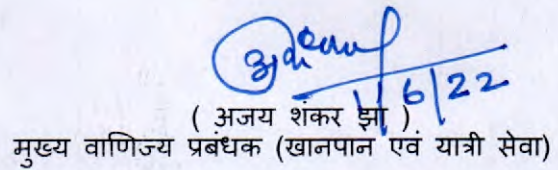 1/6/22
( अजय शंकर झा )
मुख्य वाणिज्य प्रबंधक (खानपान एवं यात्री सेवा)